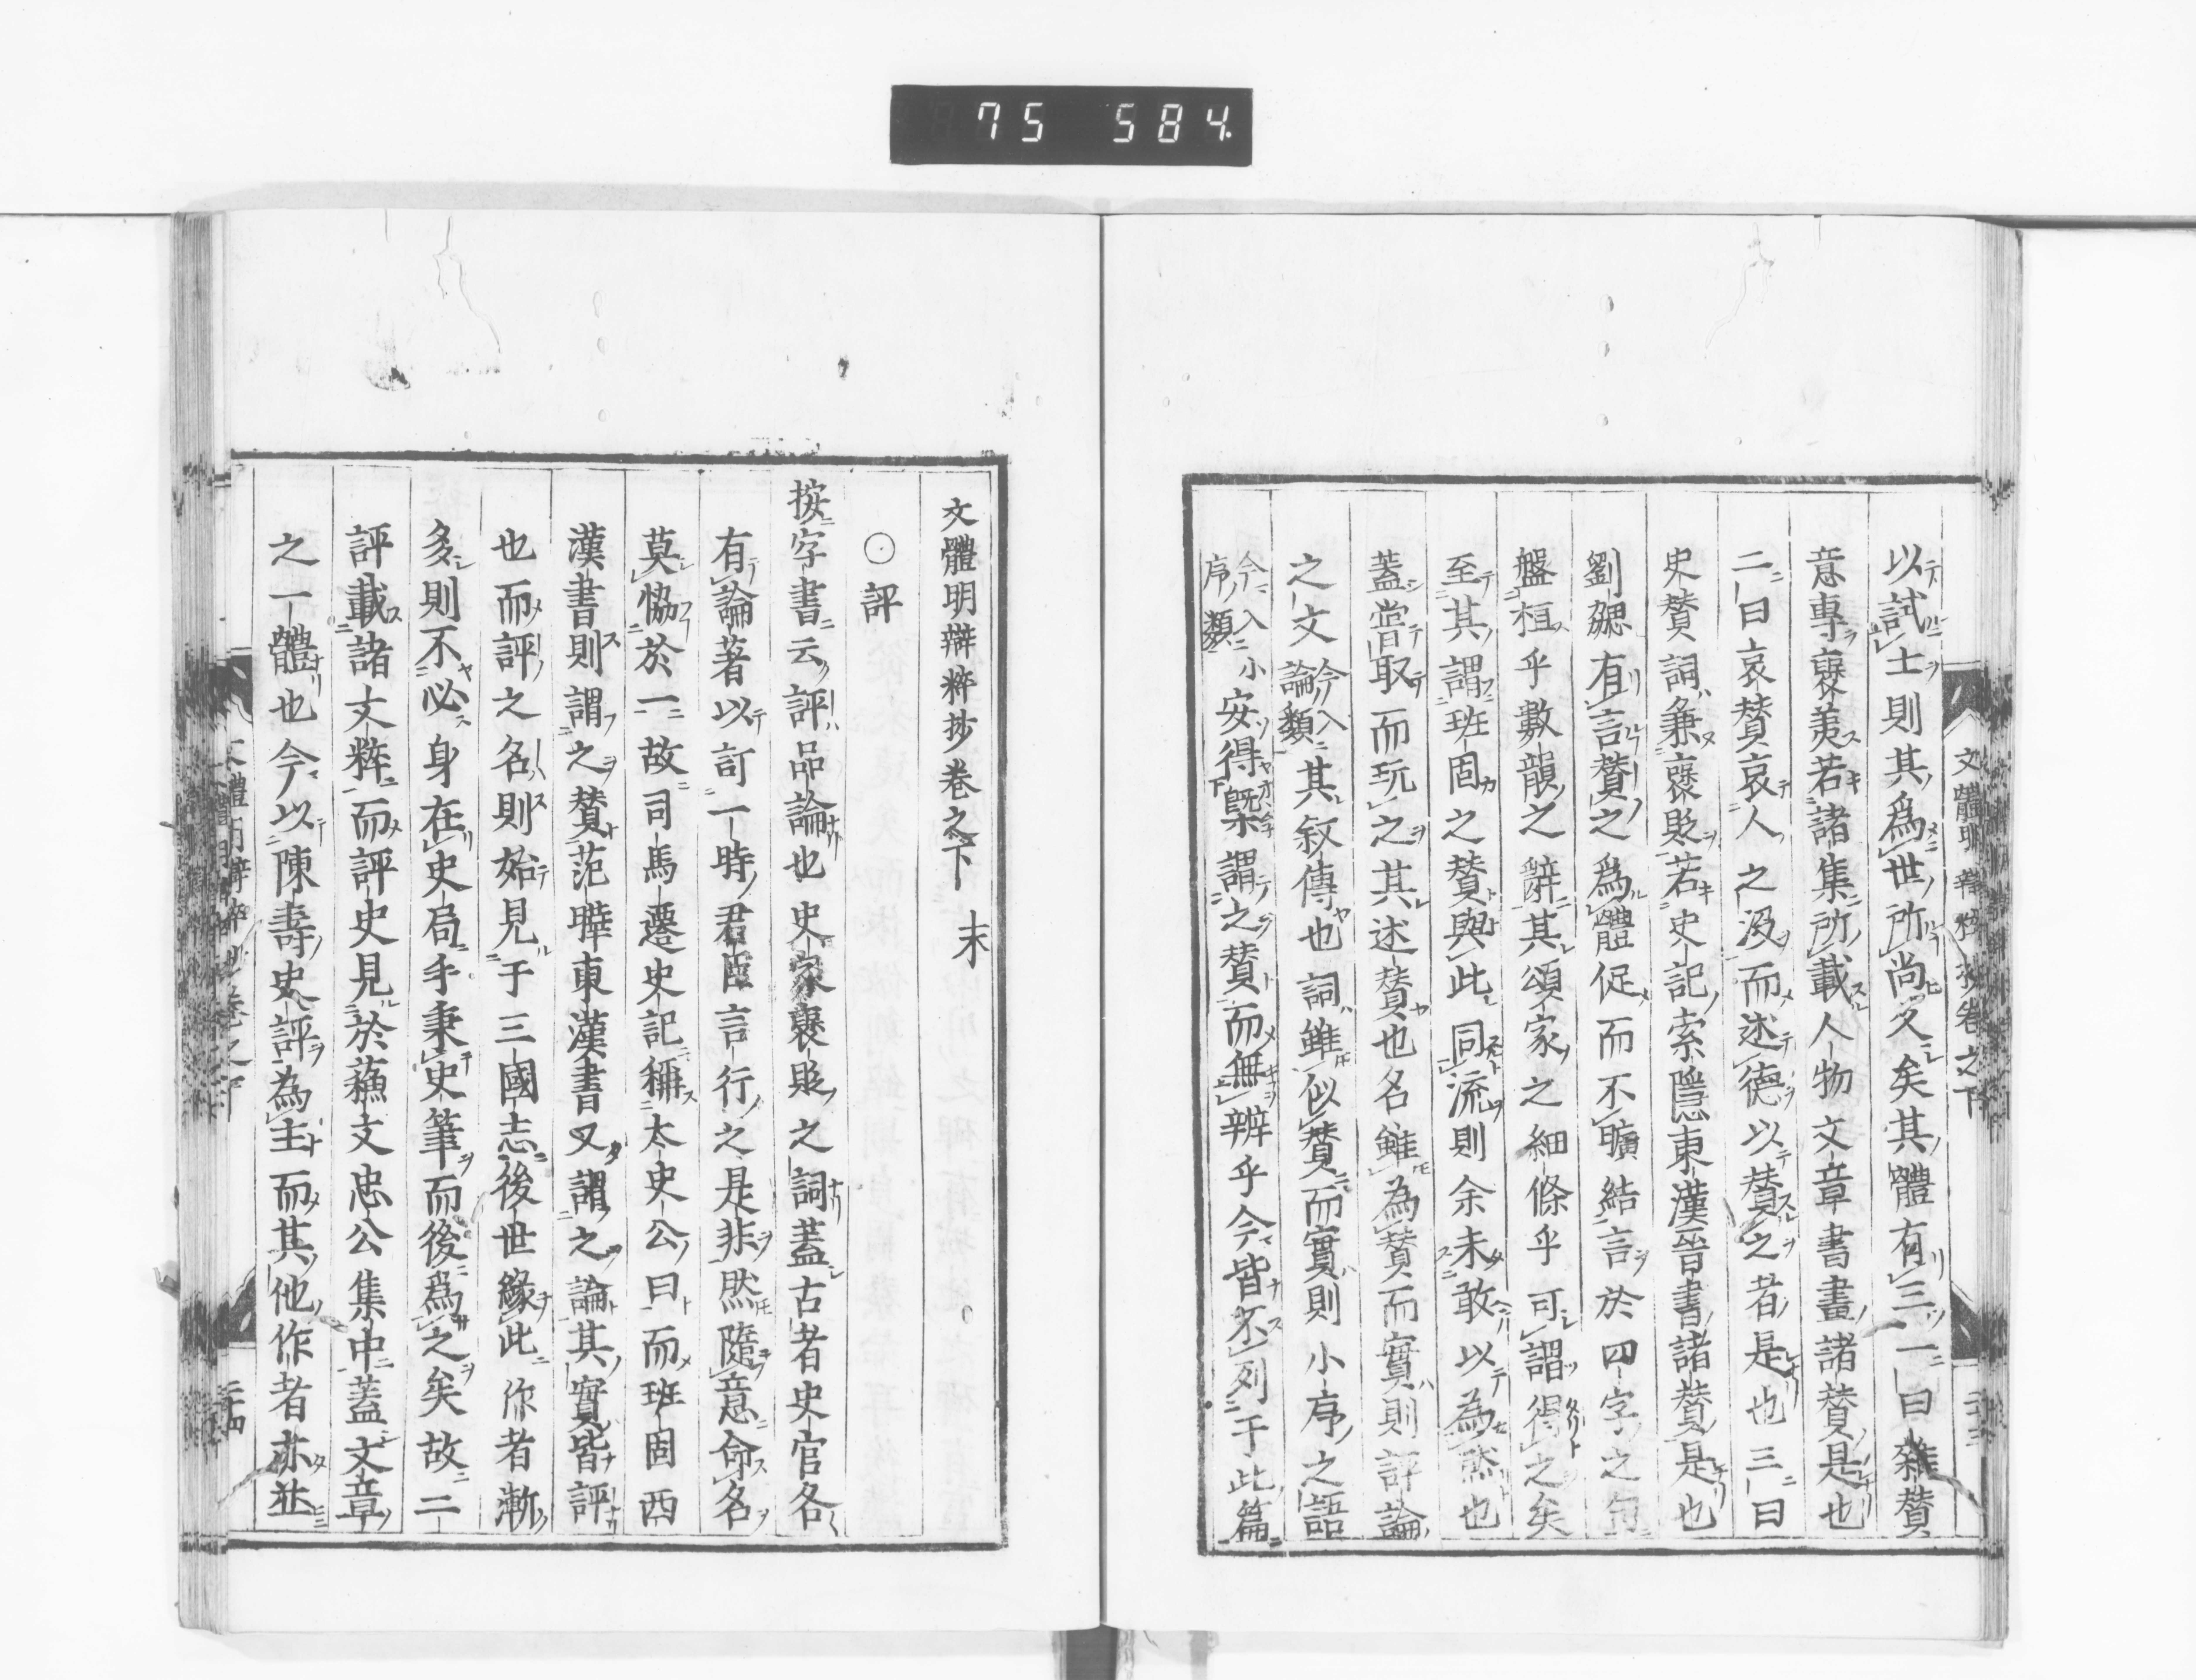 75 584
文體明辯粹抄卷之下
以試士則其為世所尚久矣其體有三一曰雜贊
意專襃美若諸集所載人物文章書畫諸贊是也
二曰哀贊哀人之沒而述德以贊之者是也三曰
史贊詞兼襃貶若史記索隱東漢晉書諸贊是也
劉勰有言贊之為體促而不曠結言於四字之句
盤桓乎數韻之辭其頌家之細條乎可謂得之矣
至其謂班固之贊與此同流則余未敢以為然也
蓋嘗取而玩之其述贊也名雖為贊而實則評論
之文今入論類其叙傳也詞雖似贊而實則小序之語
今入小序類安得槩謂之贊而無辨乎今皆不列于此篇
文體明辯粹抄卷之下 末
○評
按字書云評品論也史家襃貶之詞蓋古者史官各
有論著以訂一時君臣言行之是非然隨意命名
莫恊於一故司馬遷史記稱太史公曰而班固西
漢書則謂之贊范曄東漢書又謂之論其實皆評
也而評之名則始見于三國志後世緣此作者漸
多則不必身在史局手秉史筆而後為之矣故二
評載諸文粹而評史見於蘓文忠公集中蓋文章
之一體也今以陳壽史評為主而其他作者亦並